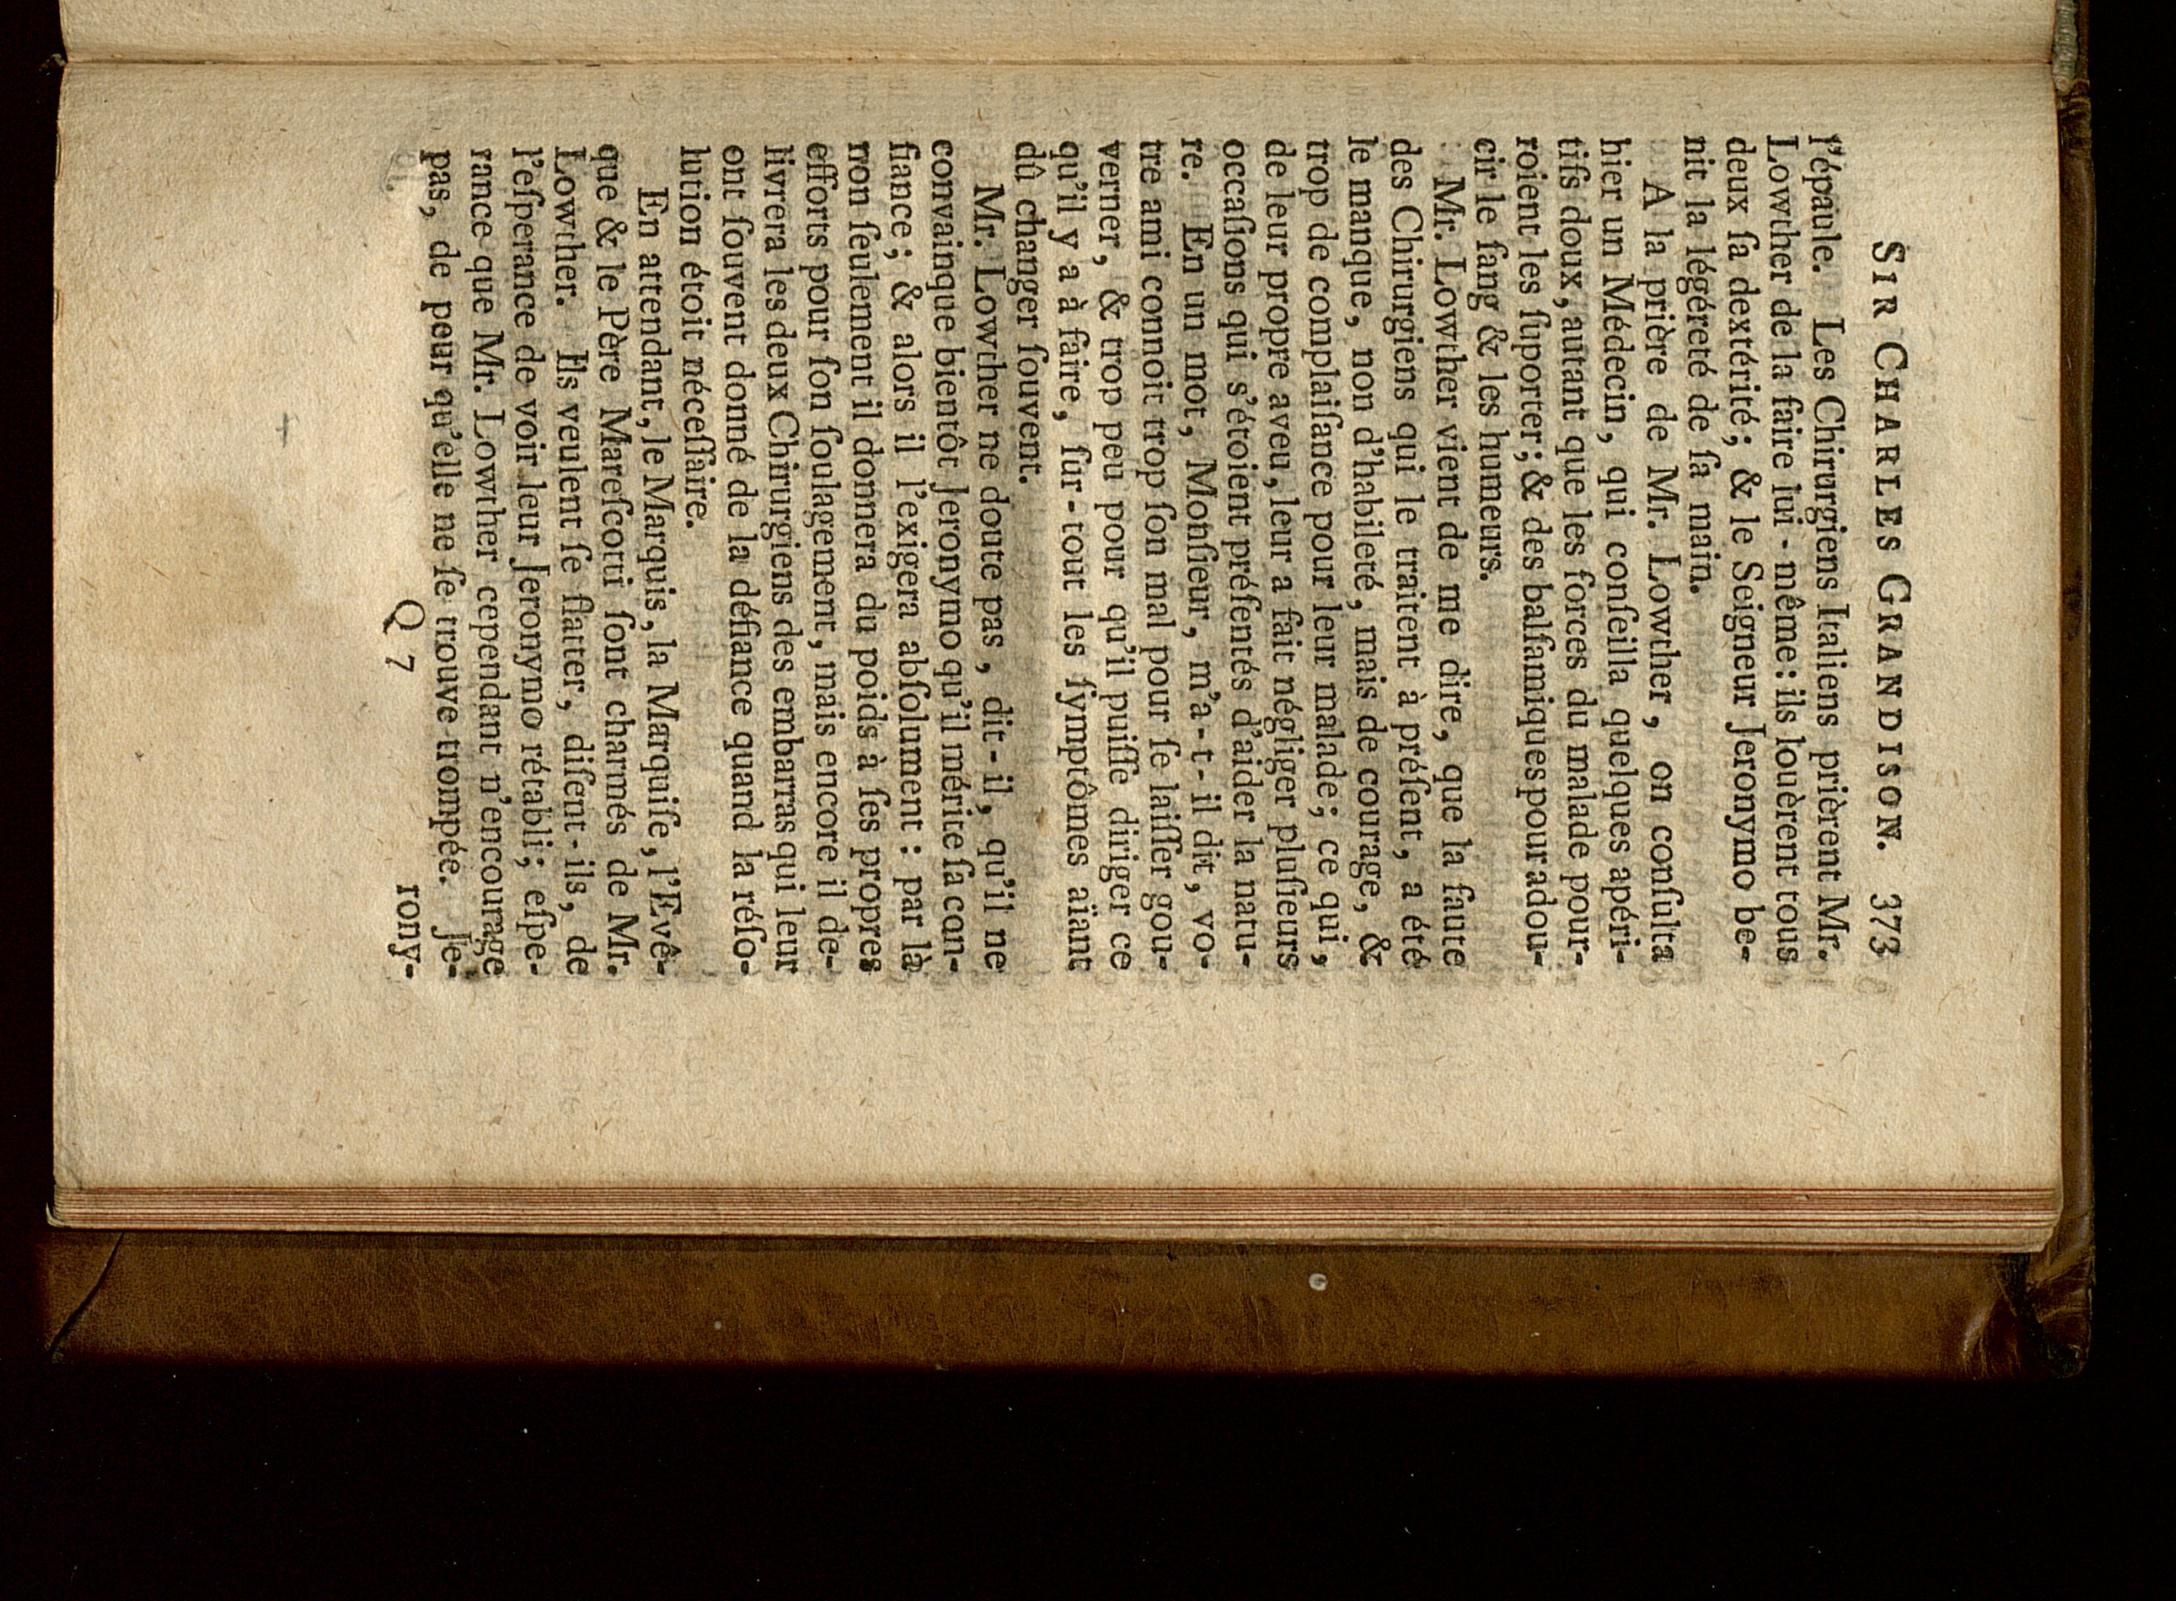 SIR CHARLES GRANDISON. 373
l'épaule. Les Chirurgiens Italiens prièrent Mr.
Lowther de la faire lui-même: ils louèrent tous
deux ſa dextérité; & le Seigneur Jeronymo be-
nit la légéreté de ſa main.
A la prière de Mr. Lowther, on conſulta
hier un Médecin, qui conſeilla quelques apéri-
tifs doux, autant que les forces du malade pour-
roient les ſuporter; & des balſamiques pour adou-
cir le ſang & les humeurs.
Mr. Lowther vient de me dire, que la faute
des Chirurgiens qui le traitent à préſent, a été
le manque, non d'habileté, mais de courage, &
trop de complaiſance pour leur malade; ce qui,
de leur propre aveu, leur a fait négliger pluſieurs
occaſions qui s'étoient préſentés d'aider la natu-
re. En un mot, Monſieur, m'a-t-il dit, vo-
tre ami connoit trop ſon mal pour ſe laiſſer gou-
verner, & trop peu pour qu'il puiſſe diriger ce
qu'il y a à faire, ſur-tout les ſymptômes aïant
dû changer ſouvent.
Mr. Lowther ne doute pas, dit-il, qu'il ne
convainque bientôt Jeronymo qu'il mérite ſa con-
fiance; & alors il l'exigera abſolument: par là
non ſeulement il donnera du poids à ſes propres
efforts pour ſon ſoulagement, mais encore il de-
livrera les deux Chirurgiens des embarras qui leur
ont ſouvent donné de la défiance quand la réſo-
lution étoit néceſſaire.
En attendant, le Marquis, la Marquiſe, l'Evê-
que & le Père Mareſcotti ſont charmés de Mr.
Lowther. Ils veulent ſe flatter, diſent-ils, de
l'eſperance de voir leur Jeronymo rétabli; eſpe-
rance que Mr. Lowther cependant n'encourage
pas, de peur qu'elle ne ſe trouve trompée. Je-
Q 7
rony-